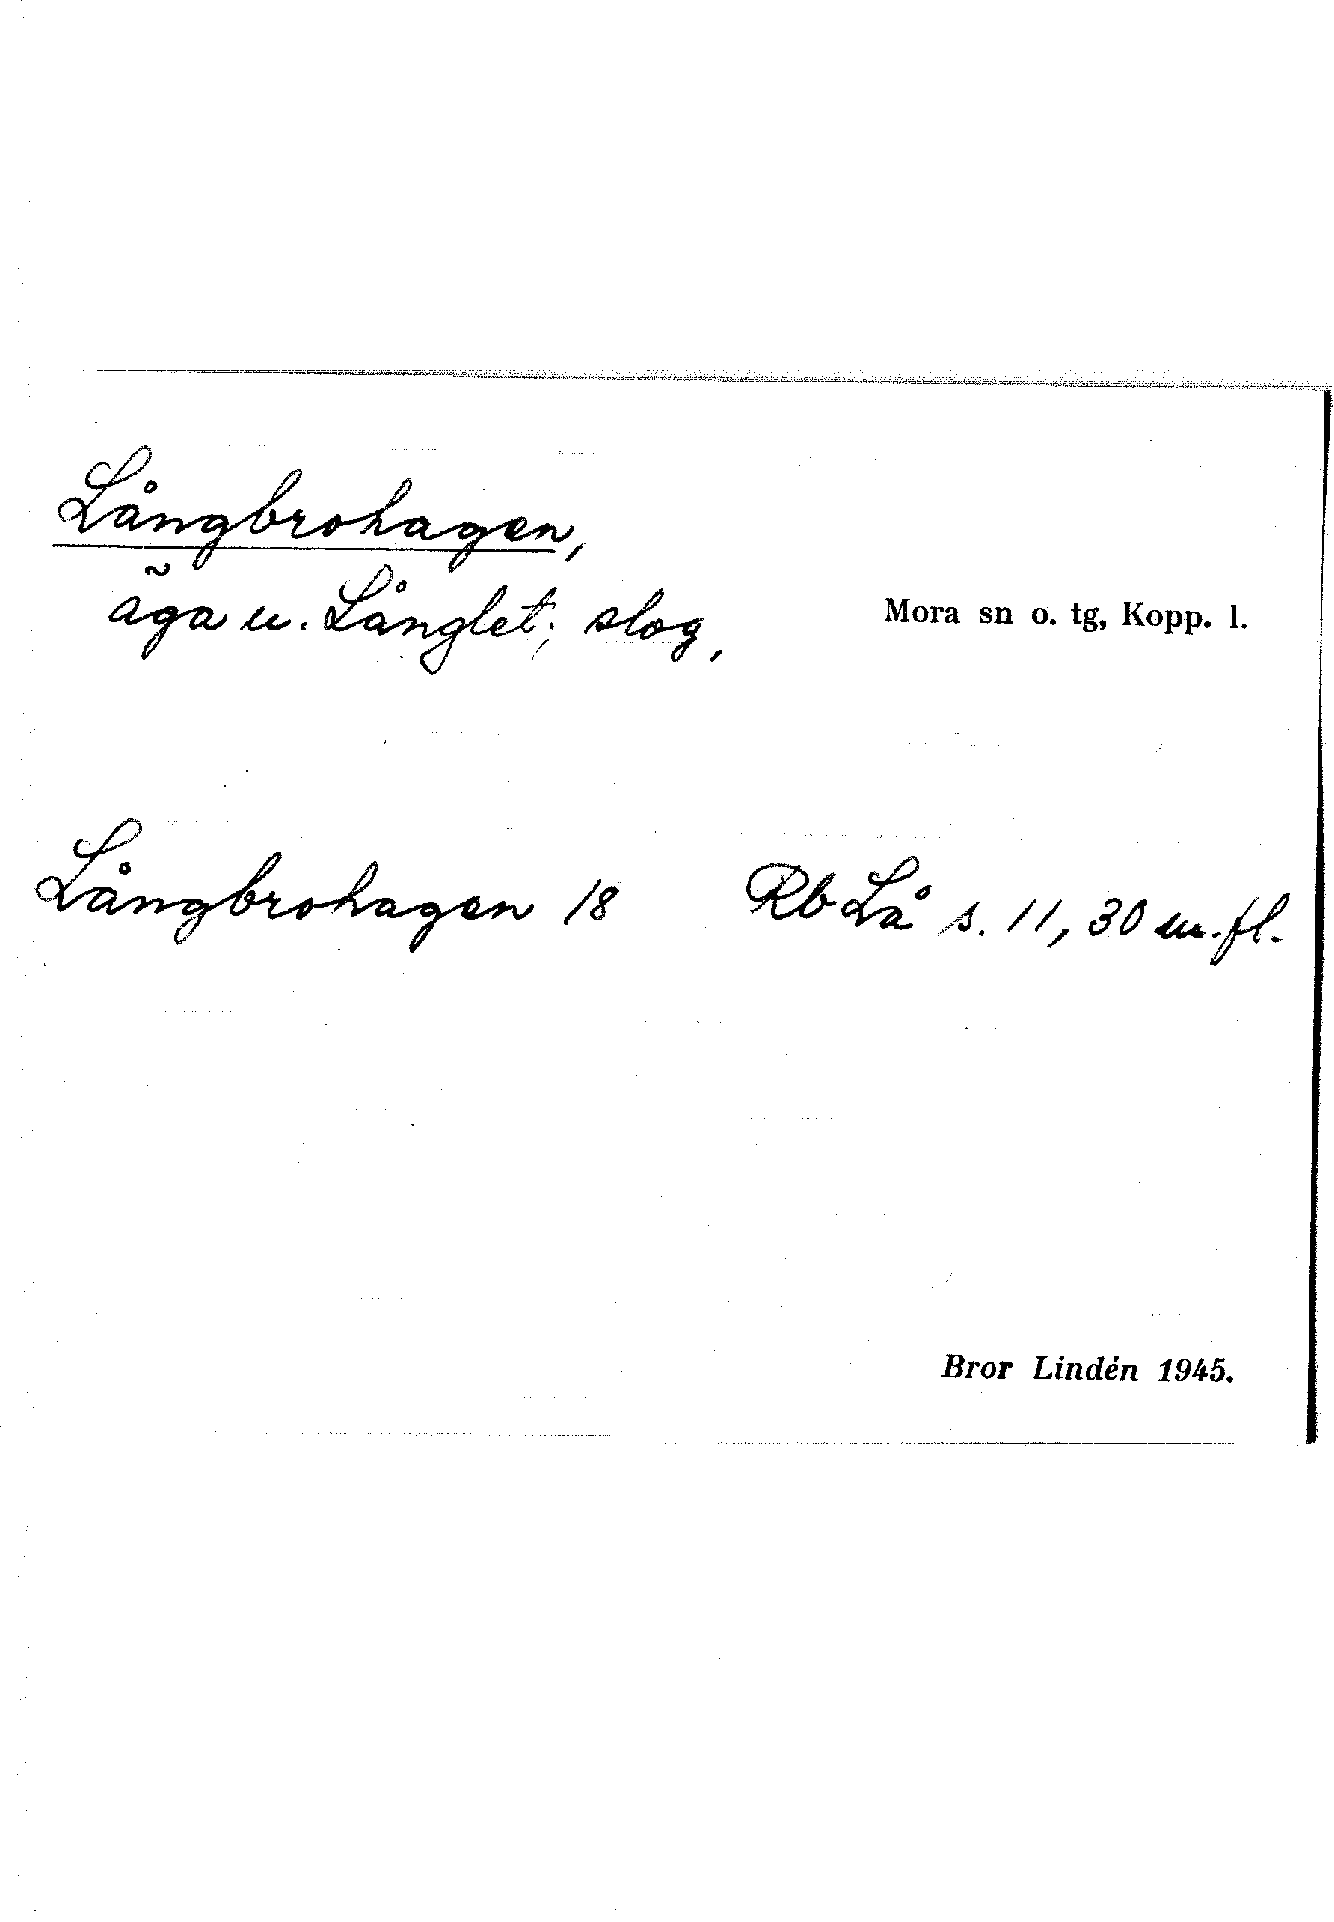 Långbrohagen,
äga u. Långlet; slog,
Mora sn o. tg, Kopp. l.
Långbrohagen 18 Rb Lå s. 11, 30 m. fl.
Bror Lindén 1945.